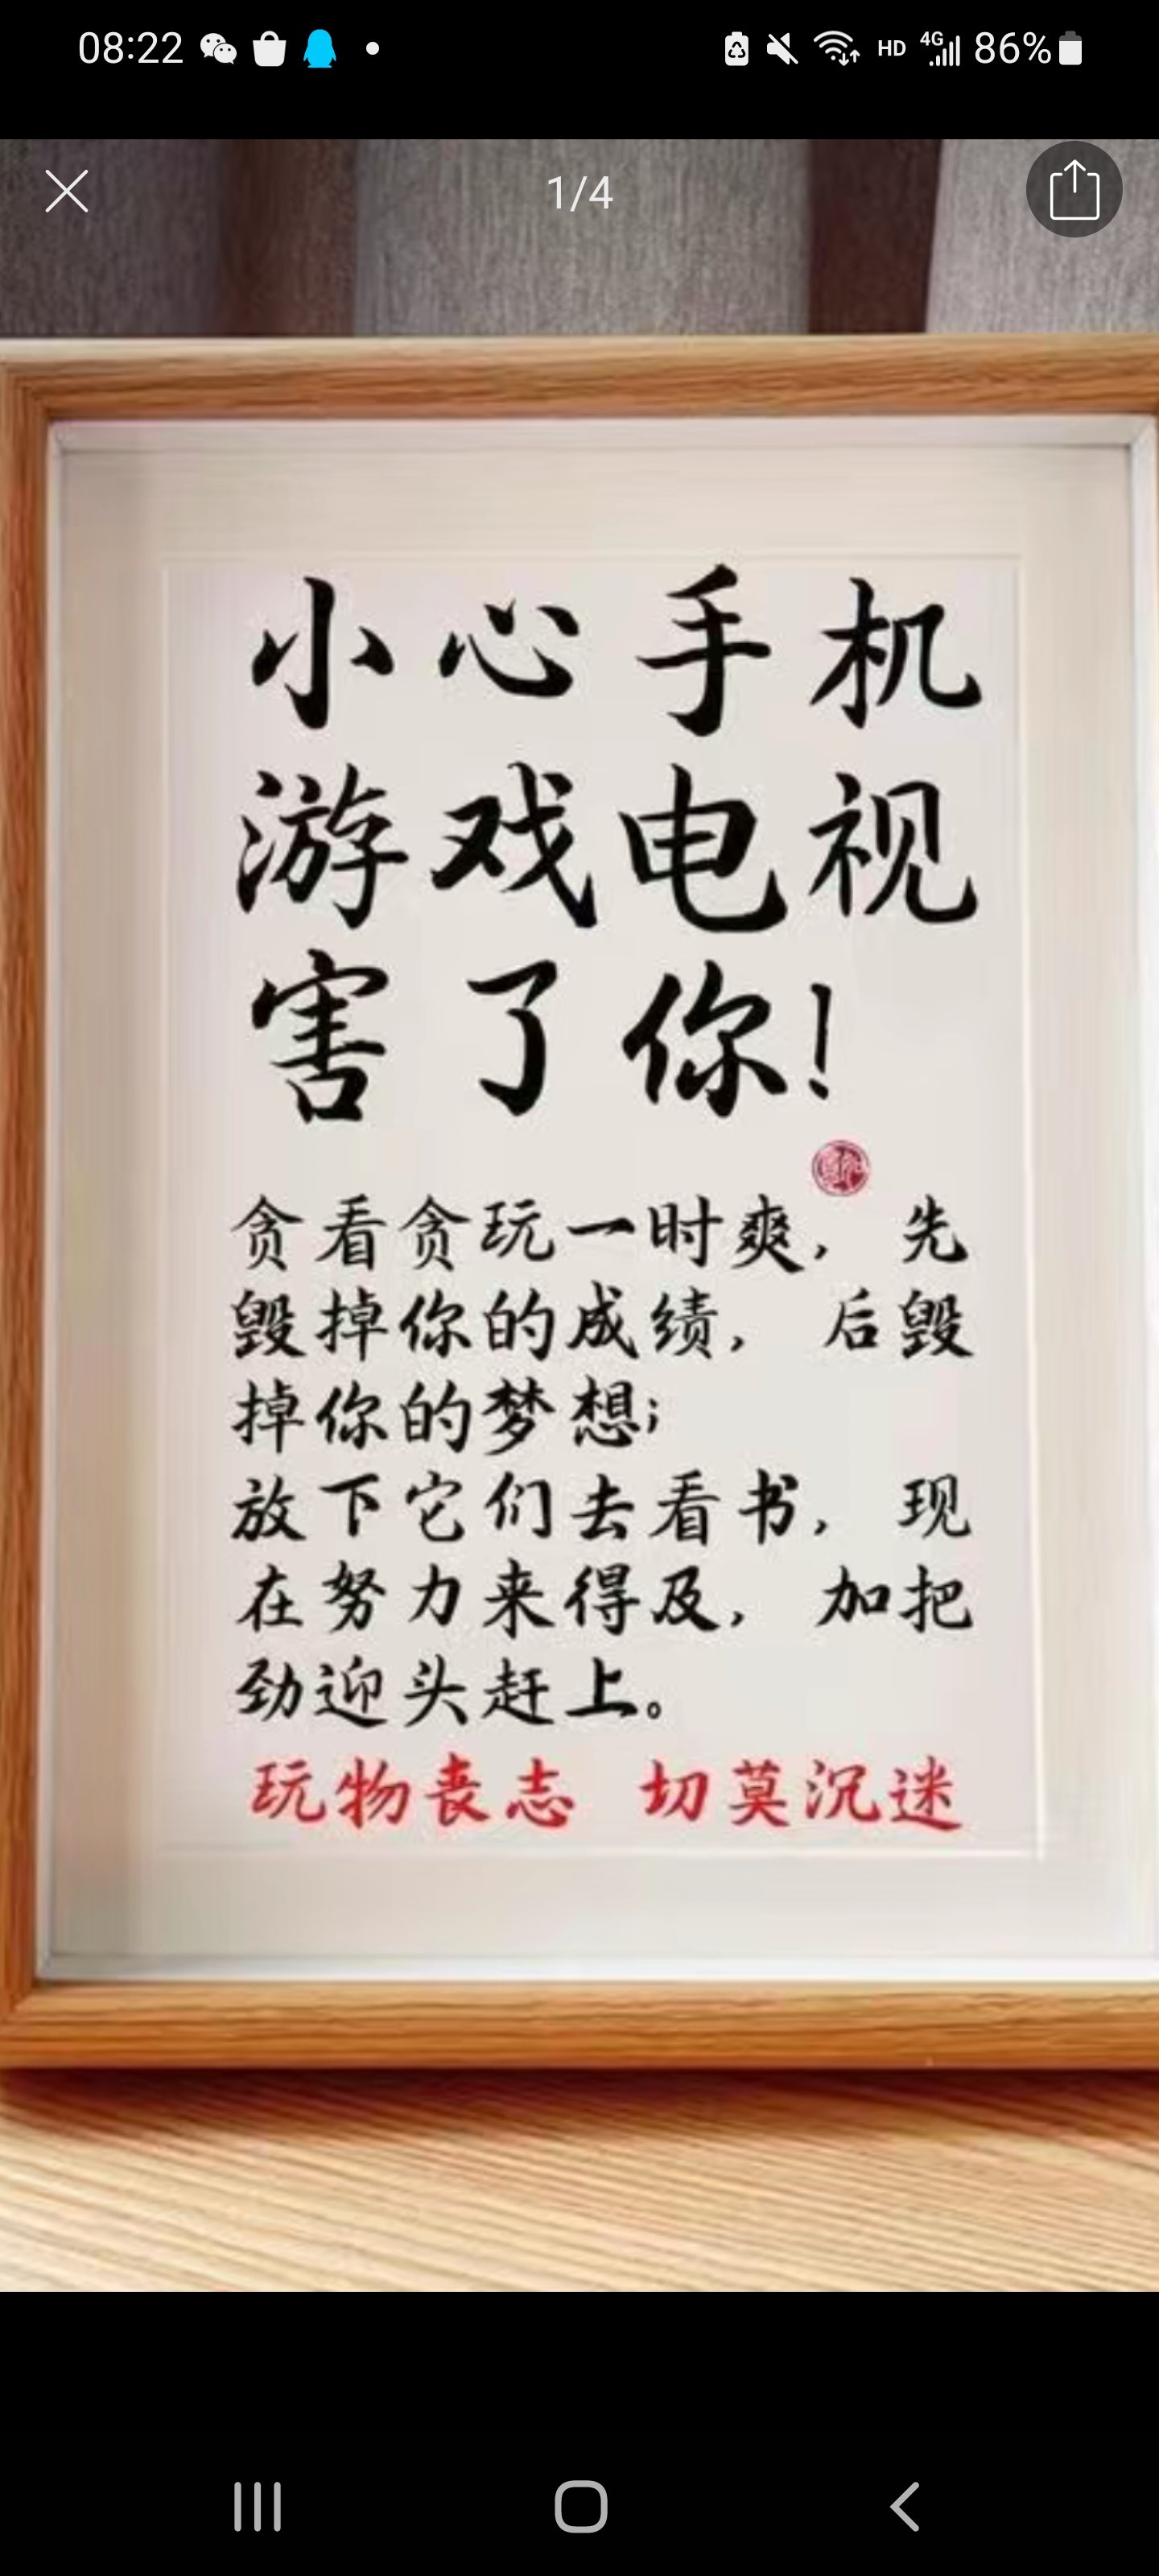 08:22
HD 4G 86%
1/4
小心手机
游戏电视
害了你!
贪看贪玩一时爽，先
毁掉你的成绩，后毁
掉你的梦想；
放下它们去看书，现
在努力来得及，加把
劲迎头赶上。
玩物丧志 切莫沉迷